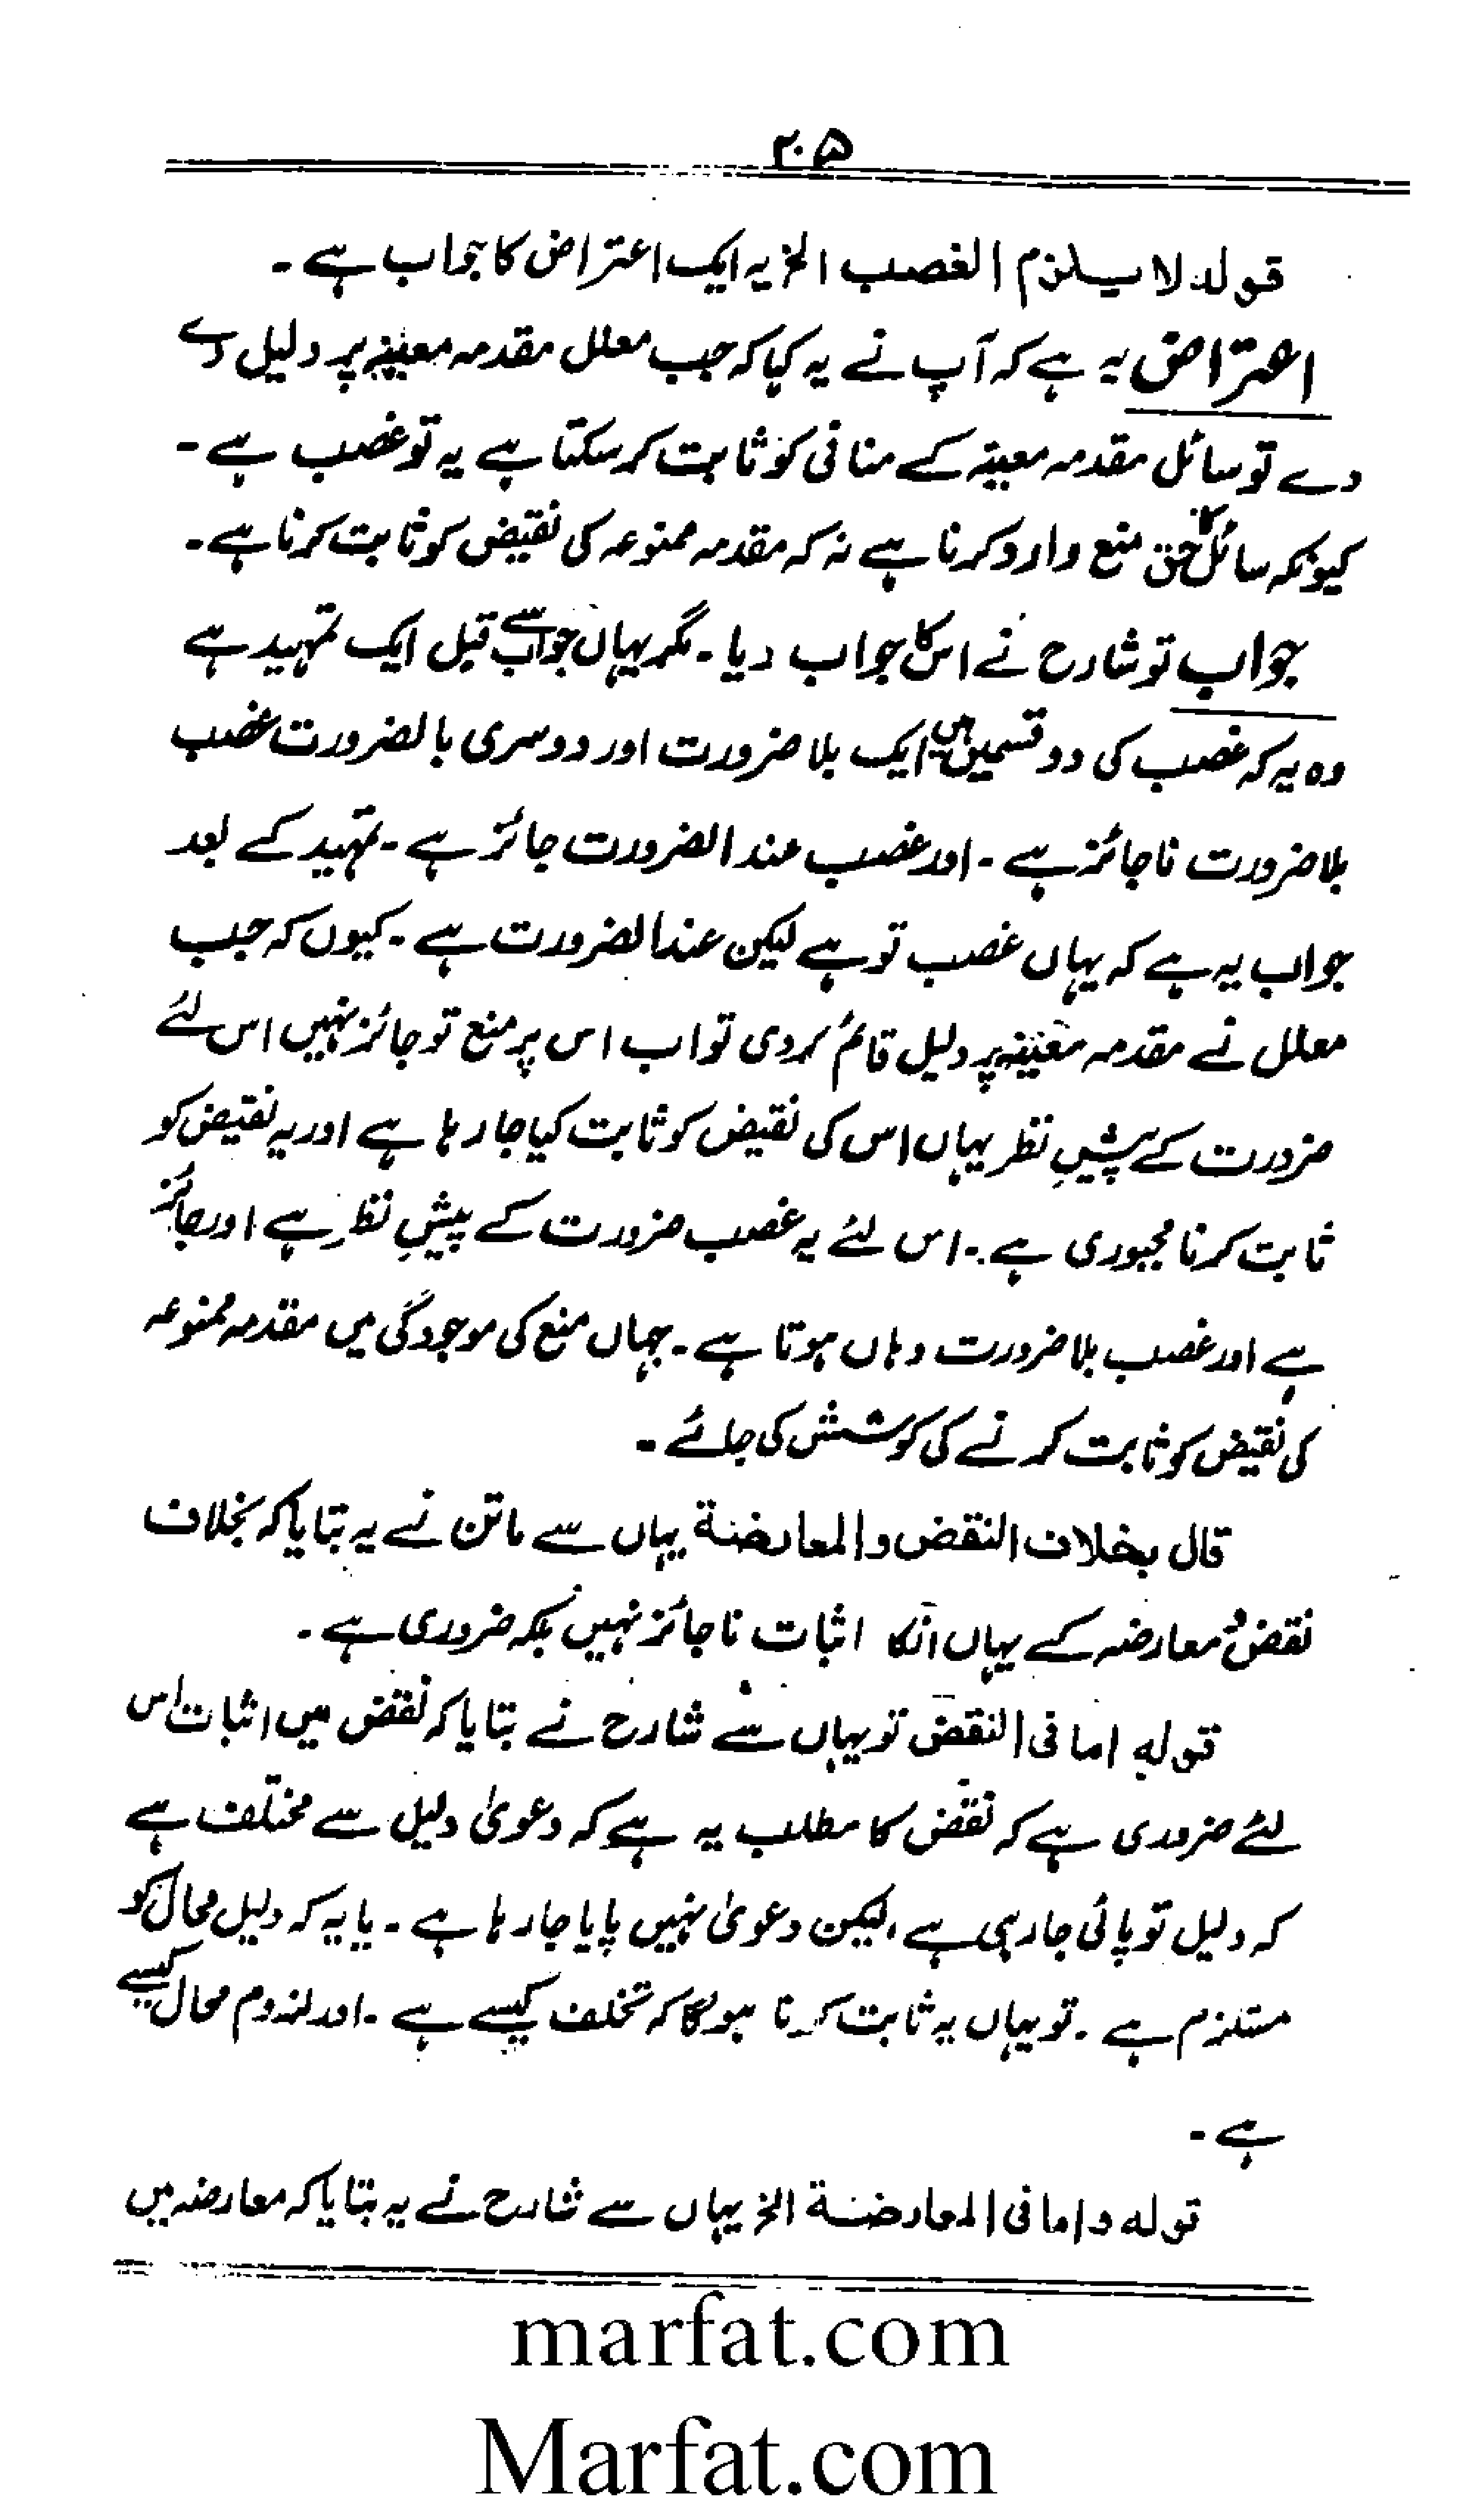 ۲۰۵
قولہ لا یلزم الغصب الخ یہ ایک اعتراض کا جواب ہے ۔
اعتراض یہ ہے کہ آپ نے یہ کہا کہ جب معلل مقدمہ معینہ پر دلیل دے
دے تو سائل مقدمہ معینہ کے منافی کو ثابت کر سکتا ہے یہ تو غصب ہے ۔
کیونکہ سائل کا حق منع وارد کرنا ہے نہ کہ مقدمہ ممنوعہ کی نقیض کو ثابت کرنا ہے ۔
جواب تو شارح نے اس کا جواب دیا ۔ مگر یہاں جواب سے قبل ایک تمہید ہے
وہ یہ کہ غصب کی دو قسمیں ہیں ایک بلا ضرورت اور دوسری بالضرورت غصب
بلا ضرورت ناجائز ہے ۔ اور غصب عند الضرورت جائز ہے ۔ تمہید کے بعد
جواب یہ ہے کہ یہاں غصب تو ہے لیکن عند الضرورت ہے ۔ کیوں کہ جب
معلل نے مقدمہ معینہ پر دلیل قائم کر دی تو اب اس پر منع تو جائز نہیں اس لئے
ضرورت کے پیشِ نظر یہاں اس کی نقیض کو ثابت کیا جا رہا ہے اور یہ نقیض کو
ثابت کرنا مجبوری ہے ۔ اس لئے یہ غصب ضرورت کے پیشِ نظر ہے اور جائز
ہے اور غصب بلا ضرورت وہاں ہوتا ہے ۔ جہاں منع کی موجودگی میں مقدمہ ممنوعہ
کی نقیض کو ثابت کرنے کی کوشش کی جائے ۔
قال بخلاف النقض والمعارضة یہاں سے ماتن نے یہ بتایا کہ بخلاف
نقض و معارضہ کے یہاں انکا اثبات ناجائز نہیں بلکہ ضروری ہے ۔
قولہ اما فی النقض تو یہاں سے شارح نے بتایا کہ نقض میں اثبات اس
لئے ضروری ہے کہ نقض کا مطلب یہ ہے کہ دعویٰ دلیل سے مختلف ہے
کہ دلیل تو پائی جا رہی ہے ، لیکن دعویٰ نہیں پایا جا رہا ہے ۔ یا یہ کہ دلیل محال کو
مستلزم ہے ۔ تو یہاں یہ ثابت کرنا ہوگا کہ تخلف کیسے ہے ۔ اور لزوم محال کیسے
ہے ۔
قولہ واما فی المعارضة الخ یہاں سے شارح نے یہ بتایا کہ معارضہ میں
marfat.com
Marfat.com